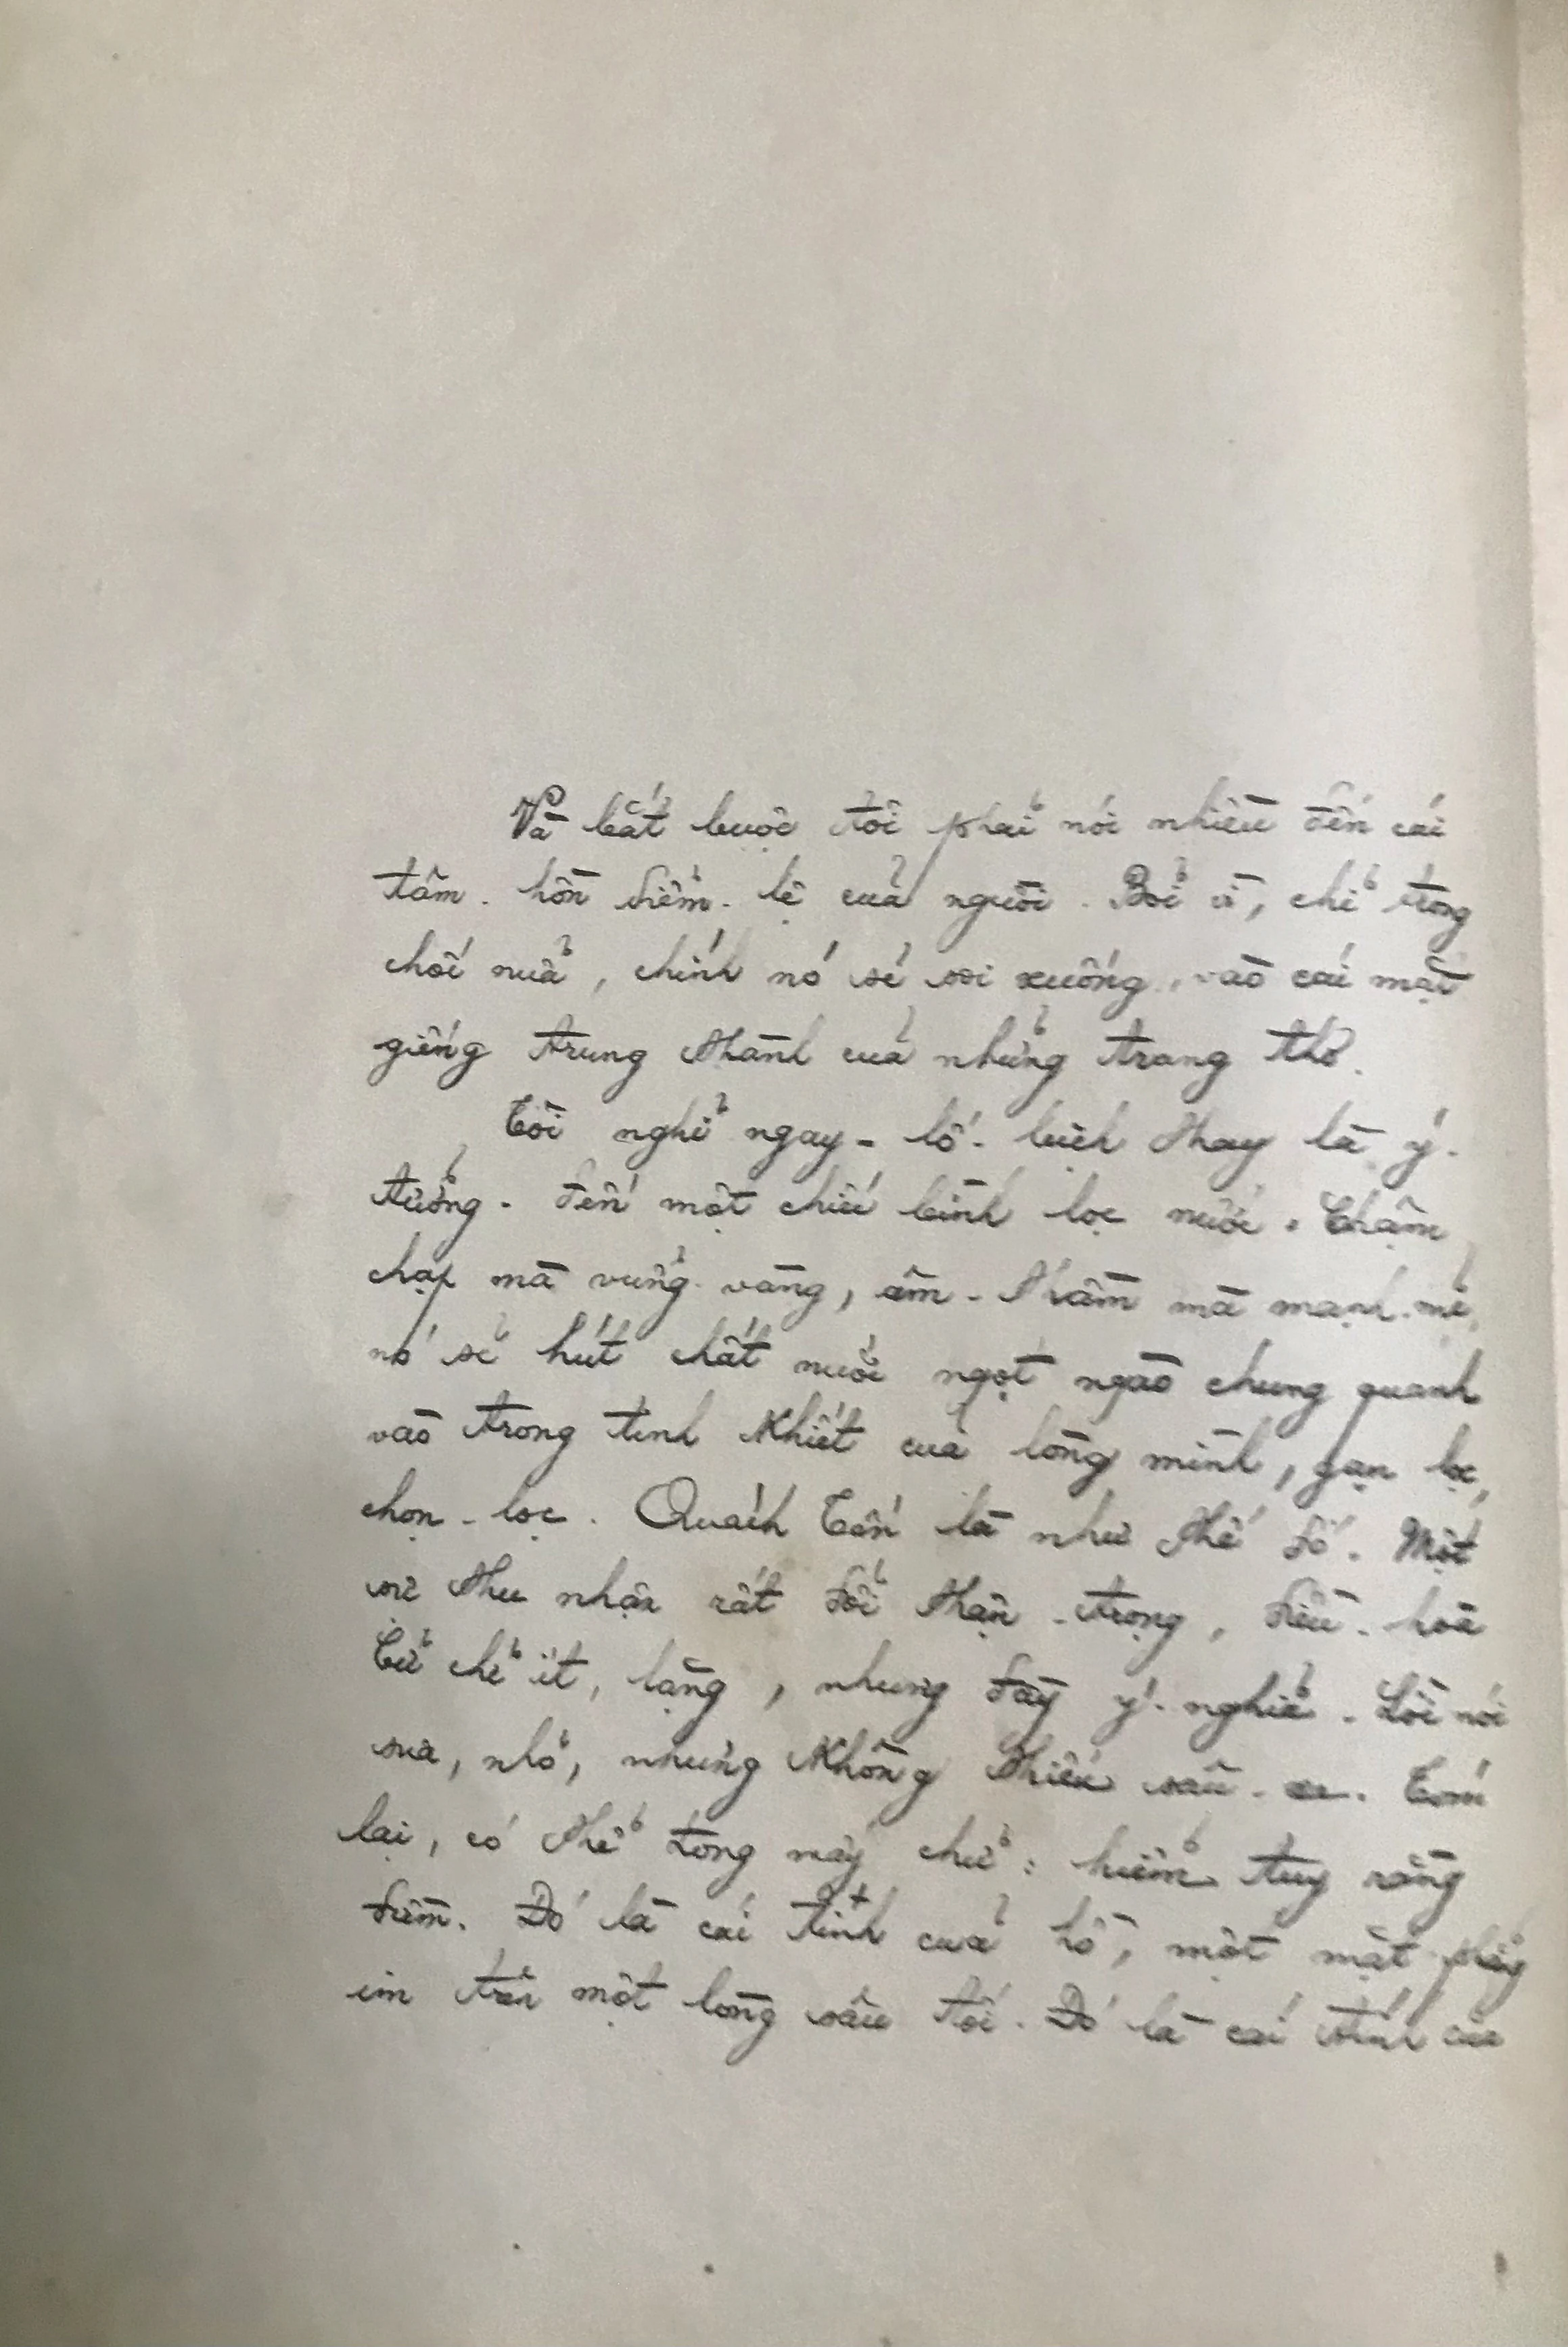 Và bắt buộc tôi phải nói nhiều đến cái
tâm-hồn diễm-lệ của người. Bởi vì, chỉ trong
chốc nữa, chính nó sẽ soi xuống vào cái mặt
giếng trung thành của những trang thơ.
Tôi nghĩ ngay - lố-bịch thay là ý-
tưởng - đến một chiếc bình lọc nước. Chậm
chạp mà vững-vàng, âm-thầm mà mạnh-mẽ,
nó sẽ hút chất nước ngọt ngào chung quanh
vào trong tinh khiết của lòng mình, gạn lọc,
chọn-lọc. Quách Tấn là như thế đó. Một
sự thu nhận rất đỗi thận-trọng, điều-hoà
Cử chỉ ít, lặng, nhưng đầy ý-nghĩa. Lời nói
sưa, nhỏ, nhưng không thiếu sâu-xa. Tóm
lại, có thể trong mấy chữ: hiếm tuy rằng
đượm. Đó là cái tính của hồ, một mặt phẳng
im trên một lòng sâu tối. Đó là cái tính của